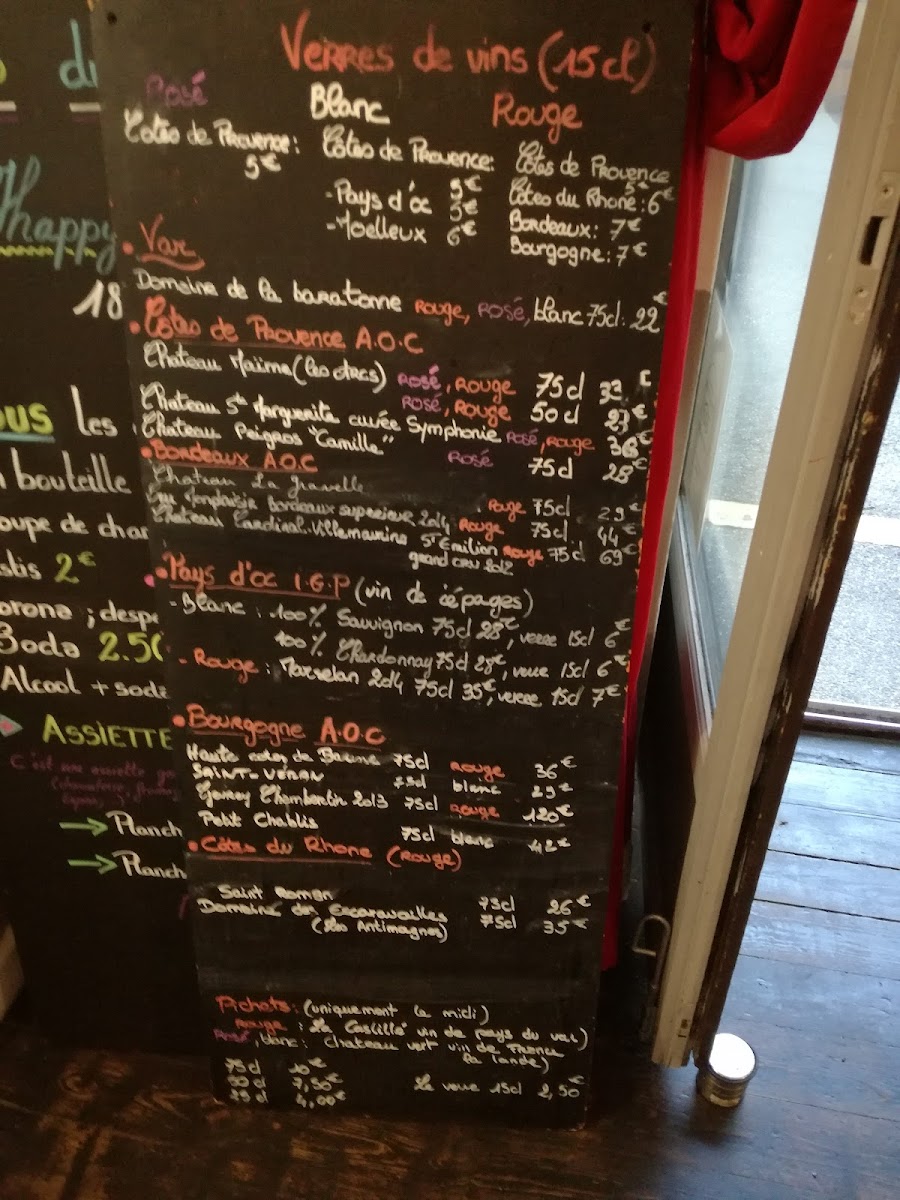 Verres de vins (15cl)
Rosé Blanc Rouge
Côtes de Provence: 5€
Côtes de Provence: 5€
- Pays d'oc 5€
- Moelleux 6€
Côtes de Provence 5€
Côtes du Rhone: 6€
Bordeaux: 7€
Bourgogne: 7€
• Var
Domaine de la baratonne Rouge, Rosé, blanc 75cl: 22€
• Côtes de Provence A.O.C
Chateau Maïme (les Arcs) Rosé, Rouge 75cl 33€
Rosé, Rouge 50cl 27€
Chateau Ste Marguerite cuvée Symphonie Rosé, Rouge 36€
Chateau Peigros "Camille" Rosé 75cl 28€
• Bordeaux A.O.C
Chateau La gravelle Rouge 75cl 29€
bordeaux superieur 2014 Rouge 75cl 44€
Chateau Cardinal Villemaurine St Emilion Rouge 75cl 69€
grand cru 2012
• Pays d'oc I.G.P (vin de cépages)
- Blanc : 100% Sauvignon 75cl 28€, verre 15cl 6€
100% Chardonnay 75cl 28€, verre 15cl 6€
- Rouge : Marselan 2014 75cl 35€, verre 15cl 7€
• Bourgogne A.O.C
Haute cotes de Beaune 75cl Rouge 36€
Saint-Véran 75cl blanc 29€
Gevrey Chambertin 2013 75cl Rouge 120€
Petit Chablis 75cl blanc 42€
• Côtes du Rhone (Rouge)
Saint Roman 75cl 26€
Domaine des Escaravailles 75cl 35€
(les Antimagnes)
Pichets: (uniquement le midi)
Rouge : La Castille vin de pays du var)
Rosé, blanc: Chateau vert vin de France
la londe)
75cl 10€
50cl 7,50€
25cl 4,00€
Le verre 15cl 2,50€
du
happy
18
ous les
bouteille
oupe de cha
stis 2€
orona ; despe
Soda 2.50
Alcool + soda
Assiette
C'est une assiette
→ Planch
→ Planch